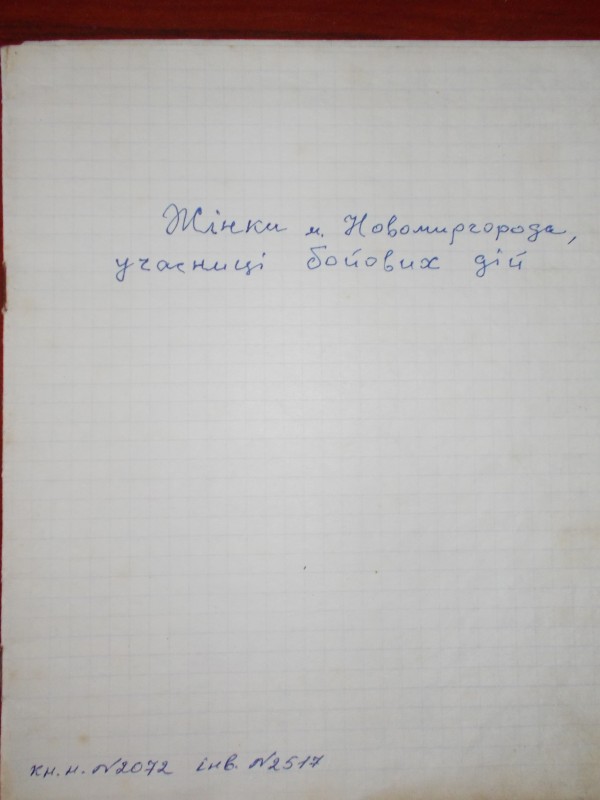 Жінки м. Новомиргорода,
учасниці бойових дій
кн.н. №2072 інв. №2517